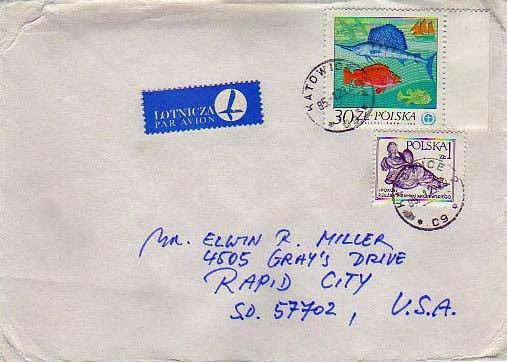 KATOWICE
30 ZŁ·POLSKA
LOTNICZA
PAR AVION
POLSKA 1
ZŁ
Mr. ELWIN R. MILLER
4505 GRAY'S DRIVE
RAPID CITY
SD. 57702, U.S.A.